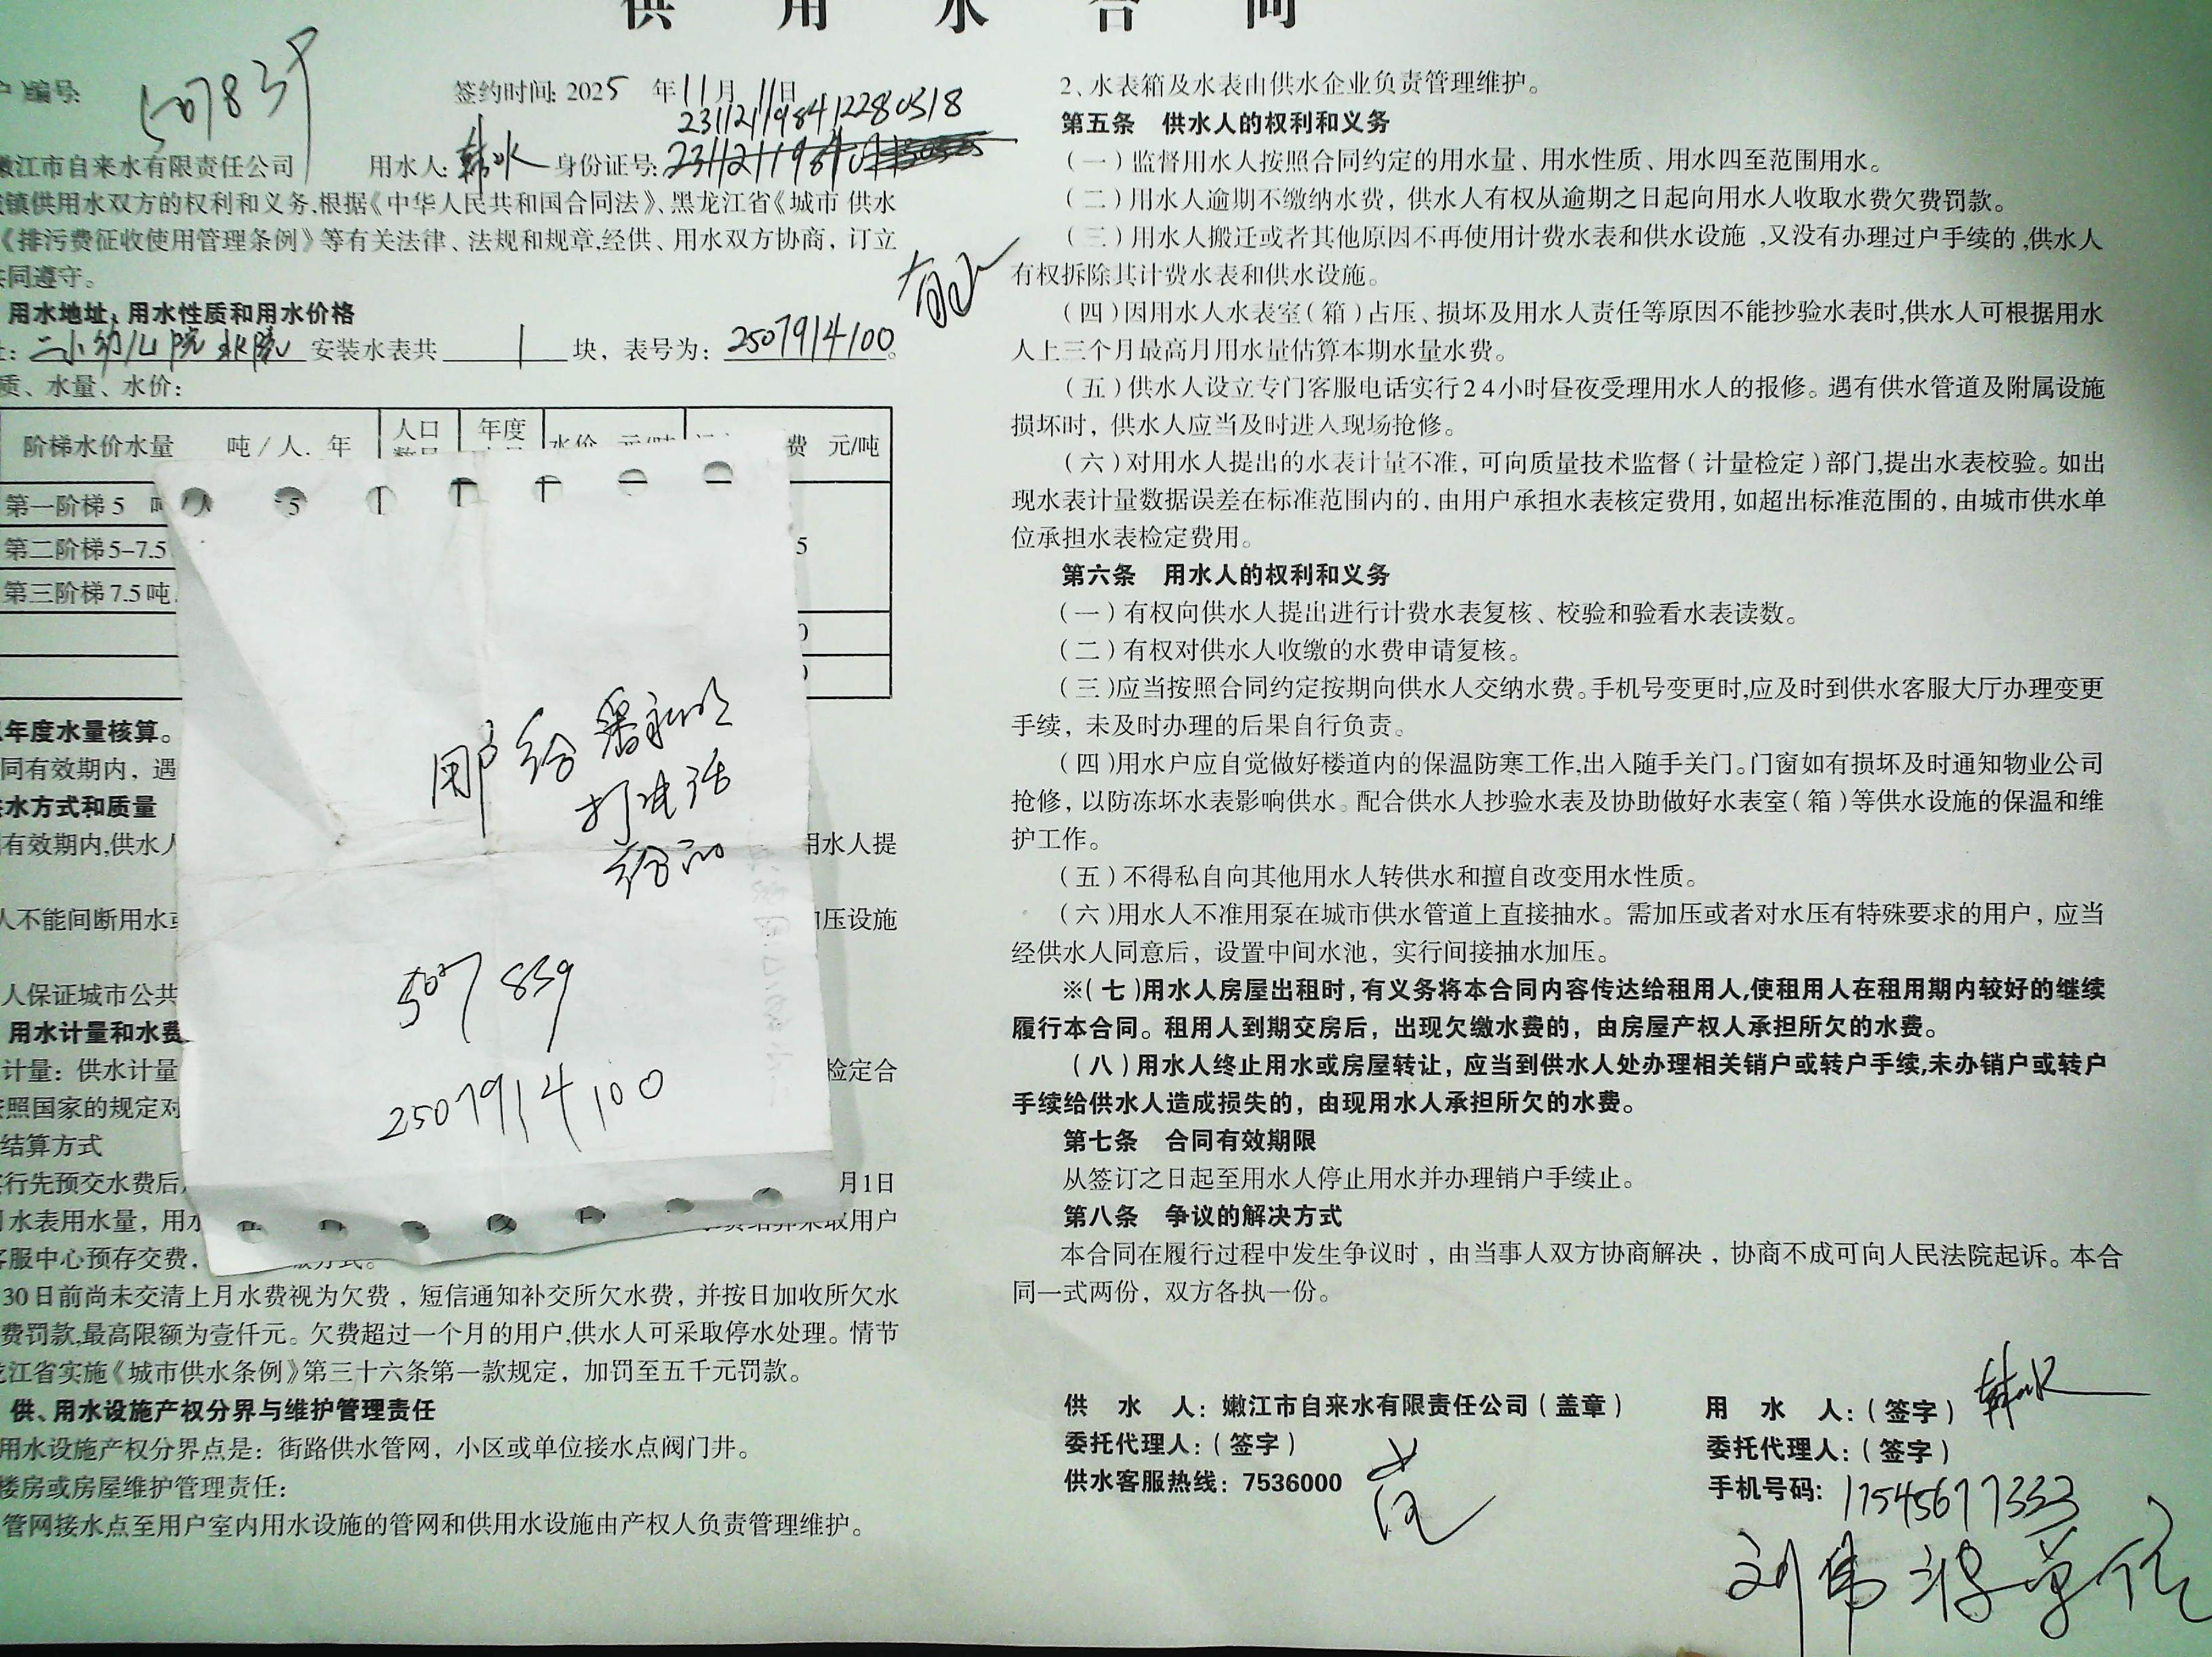 供用水合同
户)编号: 507839
签约时间: 2025 年 11 月 11 日
231121198412280518
嫩江市自来水有限责任公司 用水人: 韩冰 身份证号: 231121198
城镇供用水双方的权利和义务,根据《中华人民共和国合同法》、黑龙江省《城市 供水
《排污费征收使用管理条例》等有关法律、法规和规章,经供、用水双方协商，订立
共同遵守。
用水地址、用水性质和用水价格
二小幼儿院 安装水表共 1 块，表号为: 2507914100。
质、水量、水价:
阶梯水价水量 吨/人.年 人口 年度 水价 元/吨 费 元/吨
第一阶梯 5 吨
第二阶梯 5-7.5 5
第三阶梯 7.5 吨
0
年度水量核算。
同有效期内，遇
水方式和质量
有效期内,供水人 用水人提
人不能间断用水或 加压设施
人保证城市公共
用水计量和水费
计量: 供水计量 检定合
按照国家的规定对
结算方式
实行先预交水费后, 月1日
水表用水量，用水 采取用户
客服中心预存交费,
30日前尚未交清上月水费视为欠费，短信通知补交所欠水费，并按日加收所欠水
费罚款,最高限额为壹仟元。欠费超过一个月的用户,供水人可采取停水处理。情节
龙江省实施《城市供水条例》第三十六条第一款规定，加罚至五千元罚款。
供、用水设施产权分界与维护管理责任
用水设施产权分界点是: 街路供水管网，小区或单位接水点阀门井。
楼房或房屋维护管理责任:
管网接水点至用户室内用水设施的管网和供用水设施由产权人负责管理维护。
用户给潘永明
打电话
给的
507839
2507914100
2、水表箱及水表由供水企业负责管理维护。
第五条 供水人的权利和义务
(一)监督用水人按照合同约定的用水量、用水性质、用水四至范围用水。
(二)用水人逾期不缴纳水费，供水人有权从逾期之日起向用水人收取水费欠费罚款。
(三)用水人搬迁或者其他原因不再使用计费水表和供水设施,又没有办理过户手续的,供水人
有权拆除其计费水表和供水设施。
(四)因用水人水表室(箱)占压、损坏及用水人责任等原因不能抄验水表时,供水人可根据用水
人上三个月最高月用水量估算本期水量水费。
(五)供水人设立专门客服电话实行24小时昼夜受理用水人的报修。遇有供水管道及附属设施
损坏时，供水人应当及时进入现场抢修。
(六)对用水人提出的水表计量不准，可向质量技术监督(计量检定)部门,提出水表校验。如出
现水表计量数据误差在标准范围内的，由用户承担水表核定费用，如超出标准范围的，由城市供水单
位承担水表检定费用。
第六条 用水人的权利和义务
(一)有权向供水人提出进行计费水表复核、校验和验看水表读数。
(二)有权对供水人收缴的水费申请复核。
(三)应当按照合同约定按期向供水人交纳水费。手机号变更时,应及时到供水客服大厅办理变更
手续，未及时办理的后果自行负责。
(四)用水户应自觉做好楼道内的保温防寒工作,出入随手关门。门窗如有损坏及时通知物业公司
抢修，以防冻坏水表影响供水。配合供水人抄验水表及协助做好水表室(箱)等供水设施的保温和维
护工作。
(五)不得私自向其他用水人转供水和擅自改变用水性质。
(六)用水人不准用泵在城市供水管道上直接抽水。需加压或者对水压有特殊要求的用户，应当
经供水人同意后，设置中间水池，实行间接抽水加压。
※(七)用水人房屋出租时,有义务将本合同内容传达给租用人,使租用人在租用期内较好的继续
履行本合同。租用人到期交房后，出现欠缴水费的，由房屋产权人承担所欠的水费。
(八)用水人终止用水或房屋转让，应当到供水人处办理相关销户或转户手续,未办销户或转户
手续给供水人造成损失的，由现用水人承担所欠的水费。
第七条 合同有效期限
从签订之日起至用水人停止用水并办理销户手续止。
第八条 争议的解决方式
本合同在履行过程中发生争议时，由当事人双方协商解决，协商不成可向人民法院起诉。本合
同一式两份，双方各执一份。
供 水 人: 嫩江市自来水有限责任公司(盖章)
委托代理人:(签字)
供水客服热线: 7536000
用 水 人:(签字) 韩冰
委托代理人:(签字)
手机号码: 17545677333
刘伟